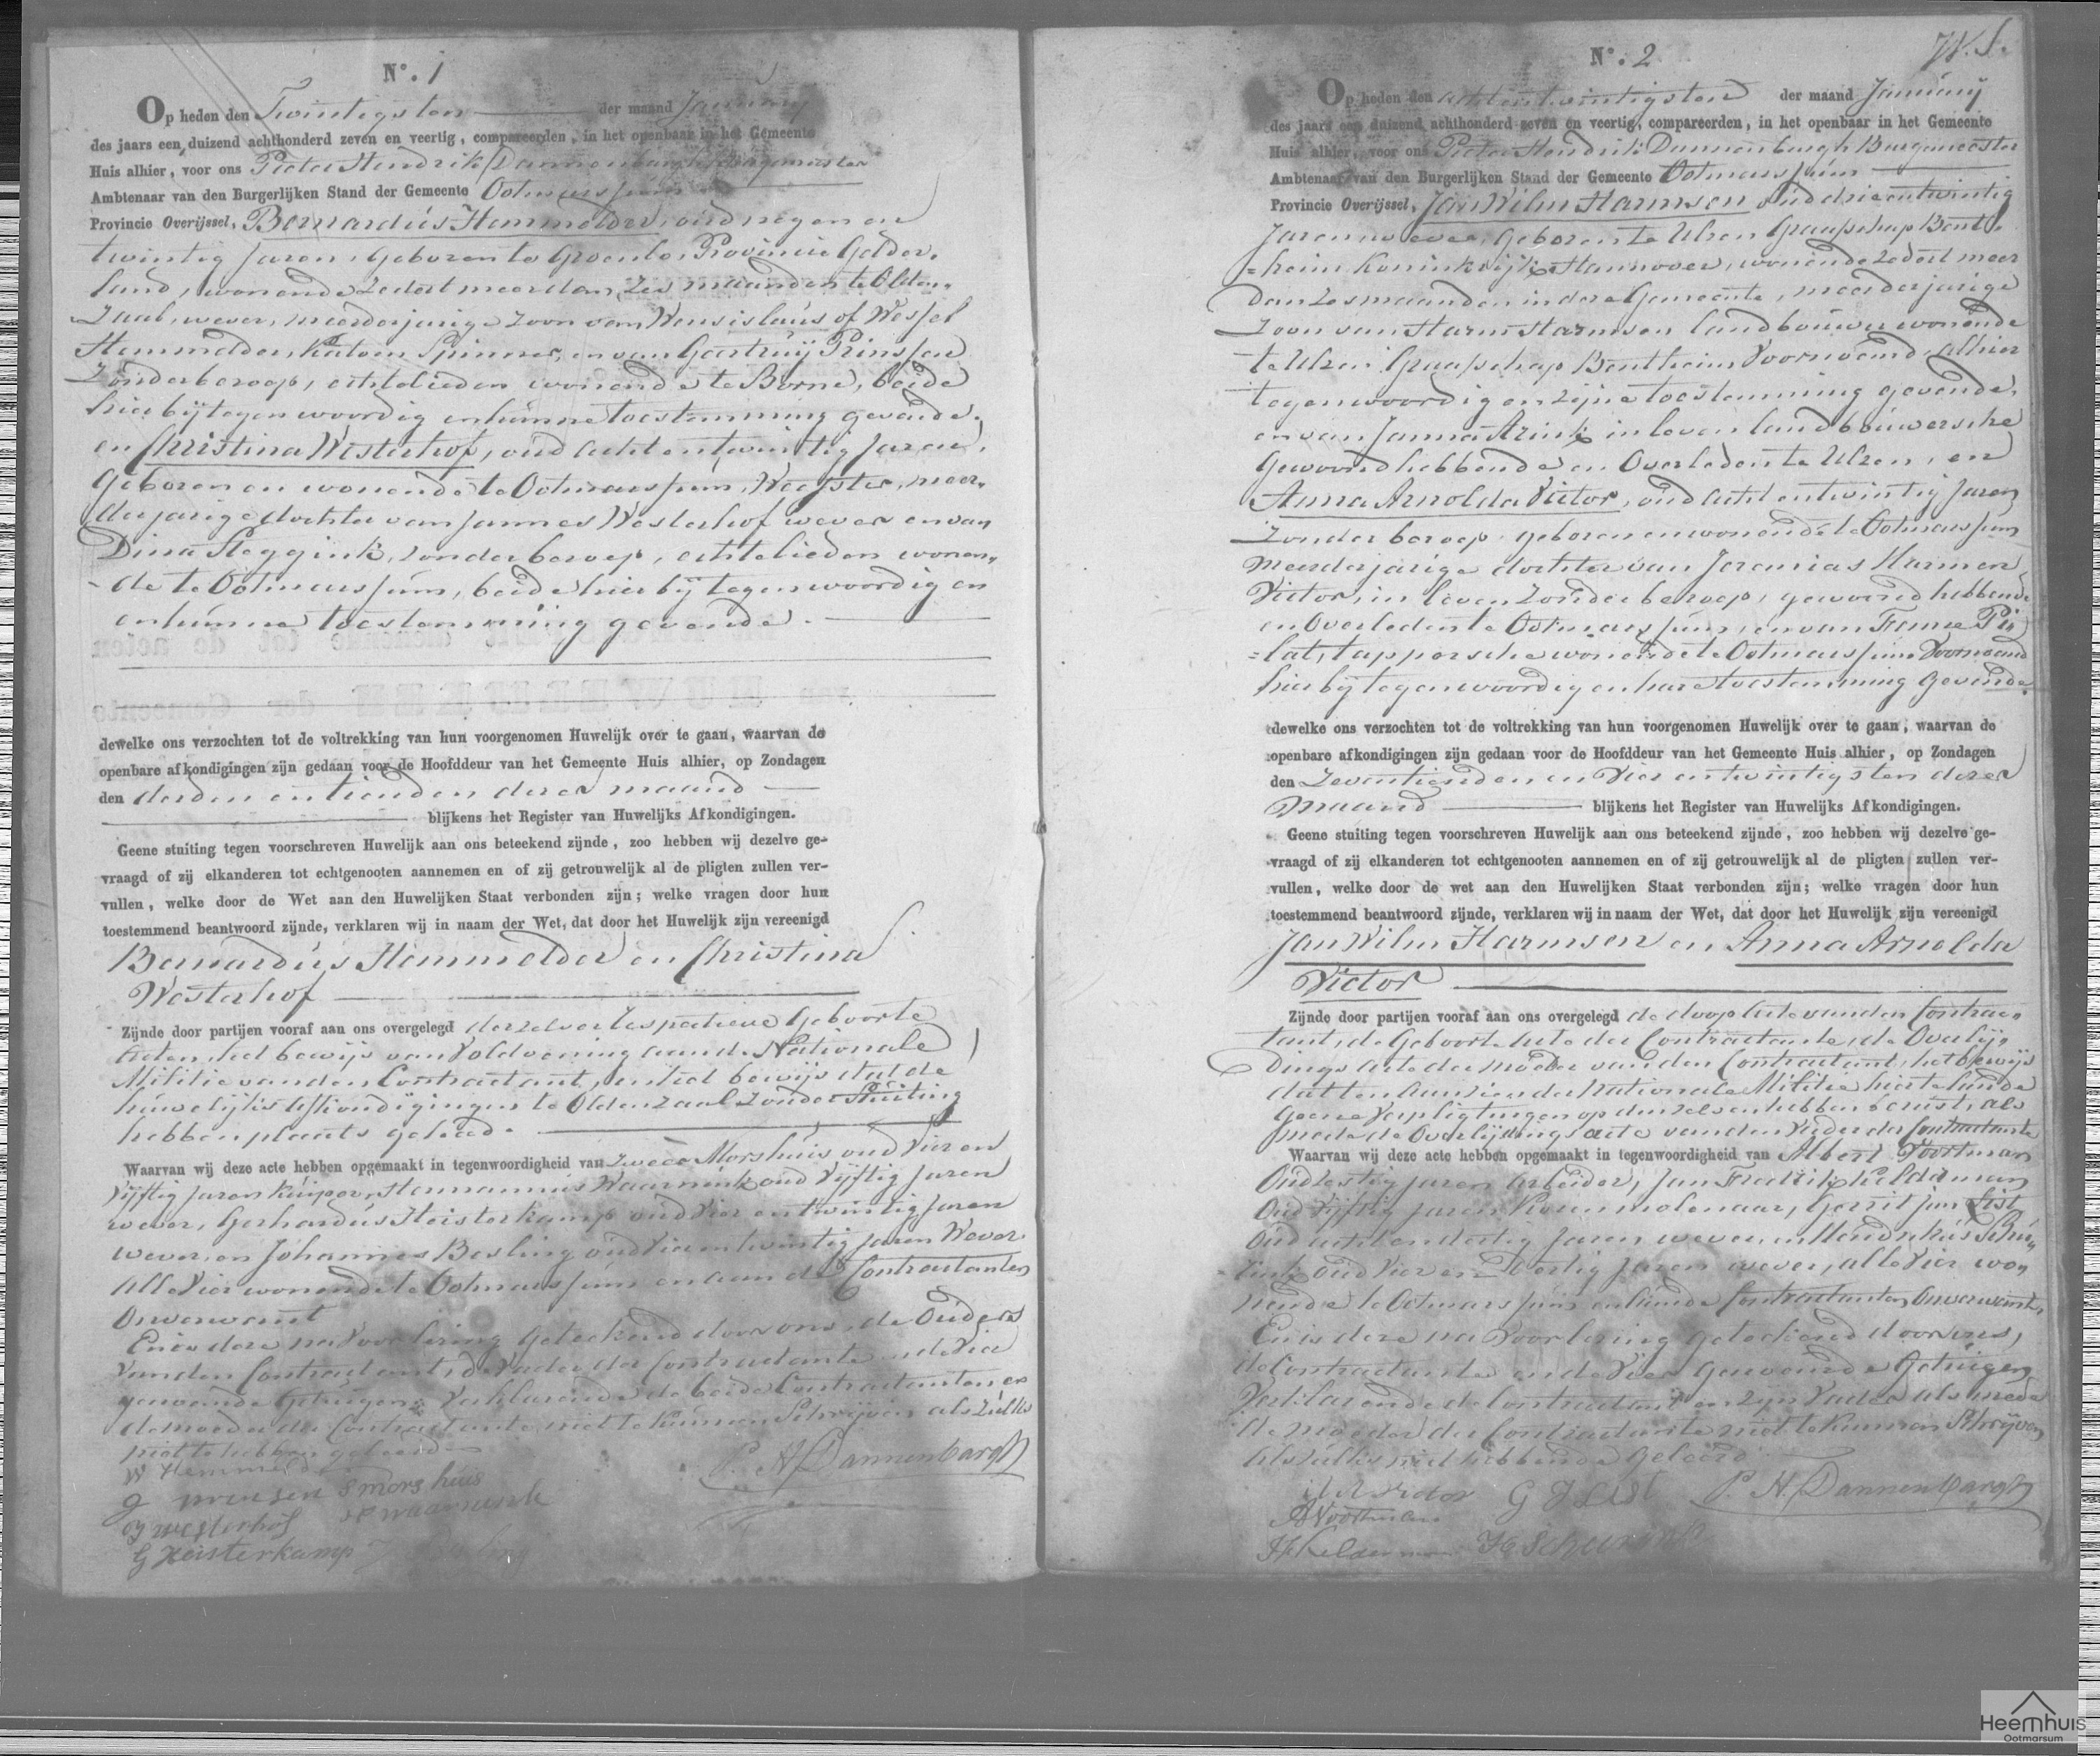 N°. 1
Op heden den Twintigsten der maand January
des jaars een duizend achthonderd zeven en veertig, compareerden, in het openbaar in het Gemeente
Huis alhier, voor ons Pieter Hendrik Dannenbargh Burgemeester
Ambtenaar van den Burgerlijken Stand der Gemeente Ootmarssum
Provincie Overijssel, Bernardus Hemmelder, oud negen en
twintig Jaren, Geboren te Groenlo, Provincie Gelder-
land, wonende zedert meer dan zes maanden te Olden-
zaal, wever, meerderjarige zoon van Wensislaus of Wessel
Hemmelder, Katoen Spinner, en van Geertruij Prinssen
zonder beroep, echtelieden wonende te Borne, beide
hier bij tegenwoordig en hunne toestemming gevende.
en Christina Westerhof, oud acht en twintig Jaren,
Geboren en wonende te Ootmarssum, Weefster, meer-
derjarige dochter van Jannes Westerhof wever en van
Dina Steggink, zonder beroep, echtelieden wonen-
de te Ootmarssum, beide hier bij tegenwoordig en
en hunne toestemming gevende.
dewelke ons verzochten tot de voltrekking van hun voorgenomen Huwelijk over te gaan, waarvan de
openbare afkondigingen zijn gedaan voor de Hoofddeur van het Gemeente Huis alhier, op Zondagen
den derden en tienden dezer maand
blijkens het Register van Huwelijks Afkondigingen.
Geene stuiting tegen voorschreven Huwelijk aan ons beteekend zijnde, zoo hebben wij dezelve ge-
vraagd of zij elkanderen tot echtgenooten aannemen en of zij getrouwelijk al de pligten zullen ver-
vullen, welke door de Wet aan den Huwelijken Staat verbonden zijn; welke vragen door hun
toestemmend beantwoord zijnde, verklaren wij in naam der Wet, dat door het Huwelijk zijn vereenigd
Bernardus Hemmelder en Christina
Westerhof
Zijnde door partijen vooraf aan ons overgelegd derzelver respectieve Geboorte
Acten, het bewijs van Voldoening aan de Nationale
Militie van den Contractant, en het bewijs dat de
huwelijks afkondigingen te Oldenzaal zonder Stuiting
hebben plaats gehad.
Waarvan wij deze acte hebben opgemaakt in tegenwoordigheid van Morshuis oud Vier en
Vijftig Jaren Kuiper, Hermannus Waarnink oud Vijftig Jaren
wever, Gerhardus Heisterkamp oud Vier en twintig Jaren
wever, en Johannes Besling oud Vier en twintig Jaren Wever
alle Vier wonende te Ootmarssum en aan de Contractanten
Onverwant
En is deze na Voorlezing geteekend door ons, de Ouders
van den Contractant, de Vader der Contractante en de Vier
genoemde Getuigen, Verklarende de beide Contractanten en
de moeder der Contractante niet te kunnen Schrijven als zulks
niet te hebben geleerd
W Hemmelder
G prinsen S morshuis P. H. Dannenbargh
J westerhof H waarnink
G Heisterkamp J Besling
N°. 2
Op heden den achtentwintigsten der maand January
des jaars een duizend achthonderd zeven en veertig, compareerden, in het openbaar in het Gemeente
Huis alhier, voor ons Pieter Hendrik Dannenbargh Burgemeester
Ambtenaar van den Burgerlijken Stand der Gemeente Ootmarssum
Provincie Overijssel, Jan Wilm Harmsen oud drieentwintig
Jaren wever, geboren te Ulsen Graafschap Bent-
=heim Koninkrijk Hannover, wonende zedert meer
dan zes maanden in deze Gemeente, meerderjarige
zoon van Harm Harmsen landbouwer wonende
te Ulsen Graafschap Bentheim Voornoemd, alhier
tegenwoordig en zijne toestemming gevende,
en van Janna Arink in leven landbouwersche
gewoond hebbende en Overleden te Ulsen, en
Anna Arnolda Victor, oud acht en twintig Jaren
zonder beroep, geboren en wonende te Ootmarssum
meerderjarige dochter van Jeremias Harmen
Victor, in leven zonder beroep, gewoond hebbende
en Overleden te Ootmarssum, en van Fenne Pi-
=lat, tappersche wonende te Ootmarssum Voornoemd
hier bij tegenwoordig en hare toestemming gevende.
dewelke ons verzochten tot de voltrekking van hun voorgenomen Huwelijk over te gaan, waarvan de
openbare afkondigingen zijn gedaan voor de Hoofddeur van het Gemeente Huis alhier, op Zondagen
den Zeventienden en Vier en twintigsten dezer
maand blijkens het Register van Huwelijks Afkondigingen.
Geene stuiting tegen voorschreven Huwelijk aan ons beteekend zijnde, zoo hebben wij dezelve ge-
vraagd of zij elkanderen tot echtgenooten aannemen en of zij getrouwelijk al de pligten zullen ver-
vullen, welke door de wet aan den Huwelijken Staat verbonden zijn; welke vragen door hun
toestemmend beantwoord zijnde, verklaren wij in naam der Wet, dat door het Huwelijk zijn vereenigd
Jan Wilm Harmsen en Anna Arnolda
Victor
Zijnde door partijen vooraf aan ons overgelegd de doop Acte van den Contrac-
tant, de Geboorte Acte der Contractante, de Overlij-
dings acte der moeder van den Contractant, het bewijs
dat ten Aanzien der Nationale Militie hier te lande
geene Verpligtingen op denzelven hebben berust, als
mede de Overlijdings acte van den Vader der Contractante
Waarvan wij deze acte hebben opgemaakt in tegenwoordigheid van Albert Voortman
Oud zestig Jaren Arbeider, Jan Fredrik Kelderman
Oud Vijftig Jaren Korenmolenaar, Gerrit Jan List
Oud acht en dertig Jaren wever, en Hendrikus Schu-
rink oud Vier en Veertig Jaren wever, alle Vier wo-
nende te Ootmarssum en aan de Contractanten Onverwant.
En is deze na Voorlezing geteekend door ons,
de Contractante en de Vier genoemde Getuigen
Verklarende de Contractant en zijn Vader als mede
de moeder der Contractante niet te kunnen Schrijven
als zulks niet hebbende geleerd
A A Victor G J List P. H. Dannenbargh
A Voortman
J F Kelderman H Schurink
Heemhuis
Ootmarsum